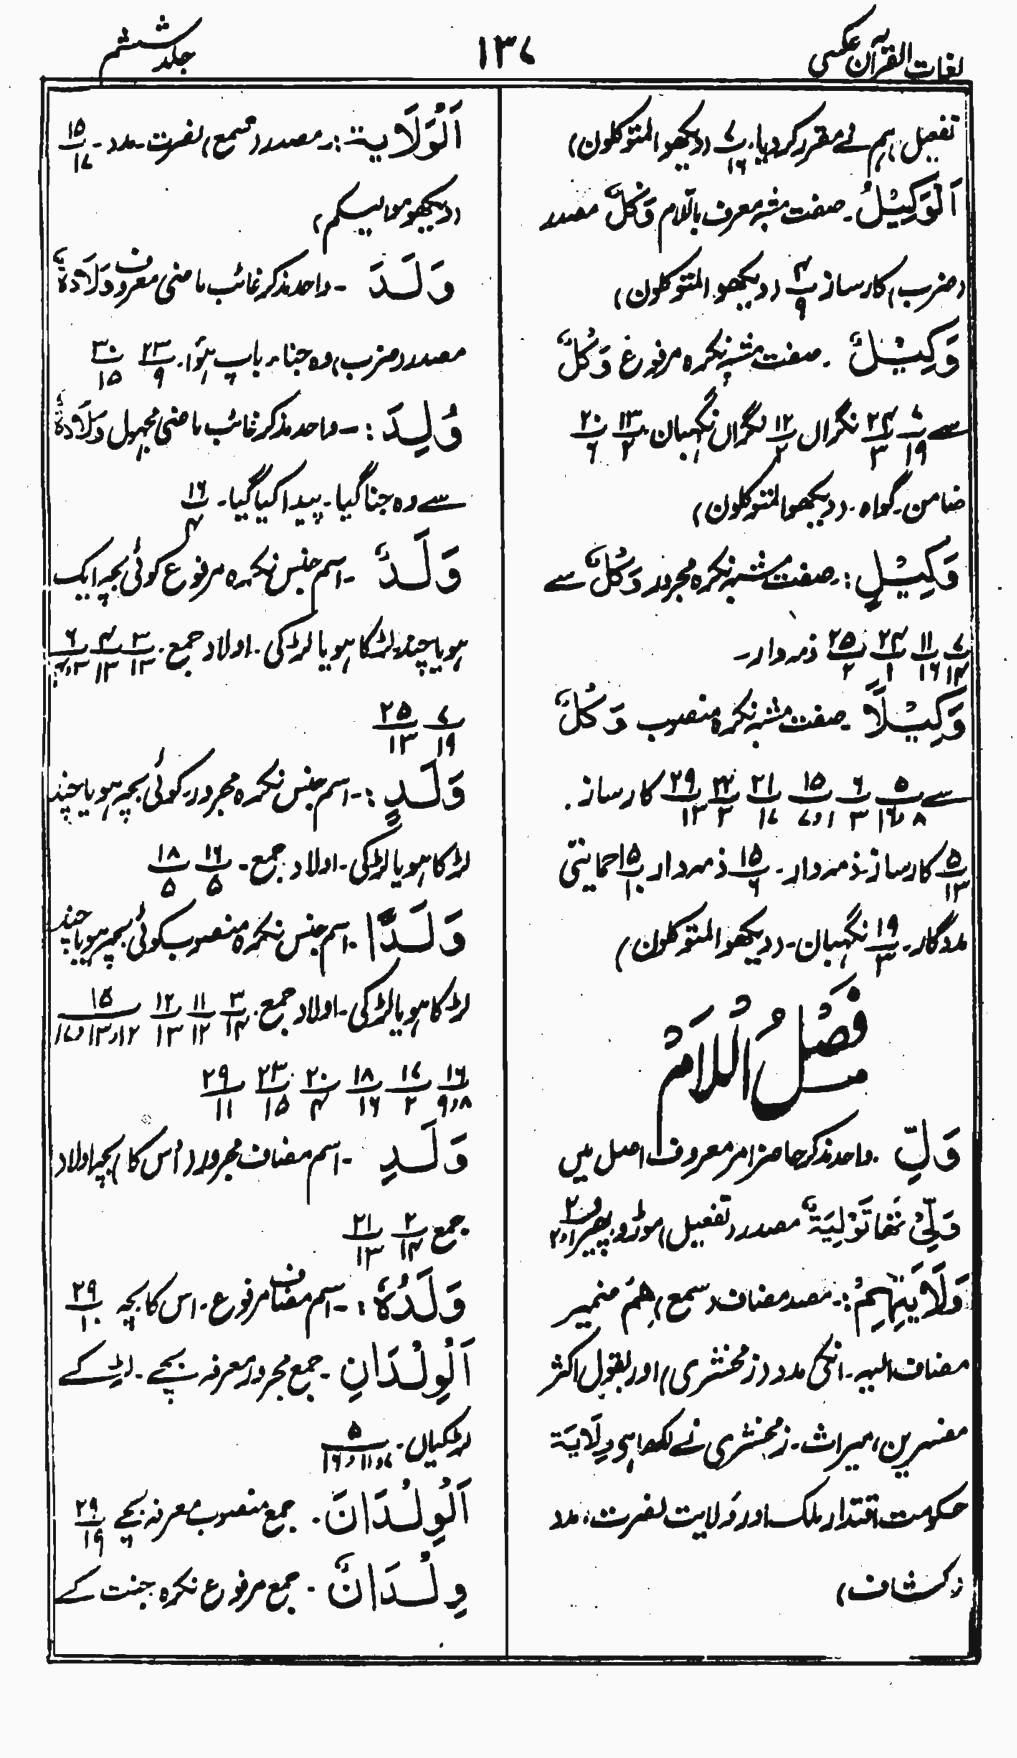 لغات القرآن عکسی
۱۳۷
جلد ششم
تفعیل) ہم نے مقرر کر دیا۔ ۷/۱۶ (دیکھو المتوکلون)
اَلْوَكِيْلُ۔ صفت مشبہ معرف باللام وَكْلٌ مصدر
(ضرب) کارساز ۴/۹ (دیکھو المتوکلون)
وَكِيْلٌ۔ صفت مشبہ نکرہ مرفوع وَكْلٌ
سے ۷/۱۹ ۲۴/۳ نگراں ۱۲/۲ نگراں نگہبان ۱۳/۲ ۲۰/۶
ضامن۔ گواہ۔ (دیکھو المتوکلون)
وَكِيْلٍ:۔ صفت مشبہ نکرہ مجرور وَكْلٌ سے
۷/۱۴ ۱۱/۱۶ ۲۴/۱ ۲۵/۲ ذمہ دار۔
وَكِيْلًا۔ صفت مشبہ نکرہ منصوب وَكْلٌ
سے ۵/۸،۱۶ ۶/۳ ۱۵/۱،۷ ۲۱/۱۷ ۲۲/۳ ۲۹/۱۳ کارساز۔
۵/۱۳ کارساز۔ ذمہ دار۔ ۱۵/۶ ذمہ دار ۱۵/۱۰ حمایتی
مددگار۔ ۱۹/۳ نگہبان۔ (دیکھو المتوکلون)
فَصْلُ اللَّامْ
وَلِّ۔ واحد مذکر حاضر امر معروف اصل میں
وَلِّيْ تھا تَوْلِيَةٌ مصدر (تفعیل) موڑ و پھیر ۲/۱،۲
وَلَايَتِهِمْ:۔ مصدر مضاف (سمع) هِمْ ضمیر
مضاف الیہ۔ انکی مدد (زمخشری) اور بقول اکثر
مفسرین، میراث۔ زمخشری نے لکھا ہی وِلَایَة
حکومت، اقتدار ملک اور وَلایت نصرت، مدد
(کشاف)
اَلْوَلَايَة:۔ مصدر (سمع) نصرت۔ مدد۔ ۱۵/۱۷
(دیکھو موالیکم)
وَلَدَ۔ واحد مذکر غائب ماضی معروف وَلَادَةٌ
مصدر (ضرب) وہ جنا۔ باپ ہوا۔ ۲۳/۹ ۳۰/۱۵
وُلِدَ:۔ واحد مذکر غائب ماضی مجہول وَلَادَةٌ
سے وہ جنا گیا۔ پیدا کیا گیا۔ ۱۶/۴
وَلَدٌ۔ اسم جنس نکرہ مرفوع کوئی بچہ ایک
ہو یا چند لڑکا ہو یا لڑکی۔ اولاد جمع۔ ۳/۱۳ ۴/۱۳ ۶/۳،۴
۷/۱۹ ۲۵/۱۳
وَلَدٍ:۔ اسم جنس نکرہ مجرور۔ کوئی بچہ ہو یا چند
لڑکا ہو یا لڑکی۔ اولاد جمع۔ ۱۶/۵ ۱۸/۵
وَلَدًا۔ اسم جنس نکرہ منصوب کوئی بچہ ہو یا چند
لڑکا ہو یا لڑکی۔ اولاد جمع۔ ۳/۱۴ ۱۱/۱۲ ۱۲/۱۳ ۱۵/۱۲،۱۳،۱۷
۱۶/۸،۹ ۱۷/۲ ۱۸/۱۶ ۲۰/۴ ۲۳/۱۵ ۲۹/۱۱
وَلَدِ۔ اسم مضاف مجرور (اس کا) بچہ اولاد
جمع ۲/۱۴ ۲۱/۱۳
وَلَدُهٗ:۔ اسم مضاف مرفوع۔ اس کا بچہ ۲۹/۱۰
اَلْوِلْدَانِ۔ جمع مجرور معرفہ بچے۔ لڑکے
لڑکیاں۔ ۵/۷،۱۱،۱۶
اَلْوِلْدَانَ۔ جمع منصوب معرفہ بچے ۲۹/۱۹
وِلْدَانٌ۔ جمع مرفوع نکرہ جنت کے